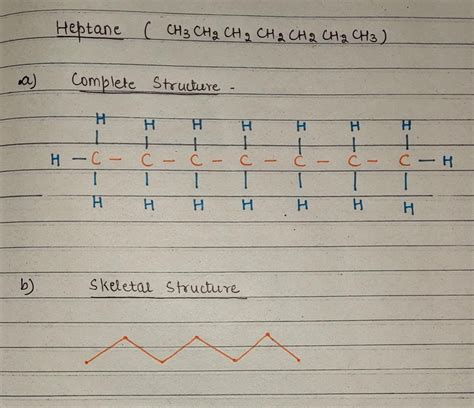 Heptane ( CH3 CH2 CH2 CH2 CH2 CH2 CH3 )
a) Complete Structure -
H H H H H H H
H - C - C - C - C - C - C - C - H
H H H H H H H
b) Skeletal Structure